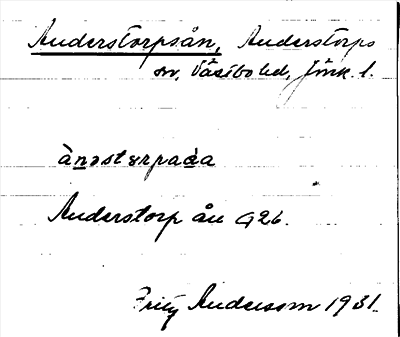 Anderstorpsån, Anderstorps
sn, Västbo hd, Jönk. l.
ànəstɤrpaa
Anderstorp ån G26.
Fritz Andersson 1931.